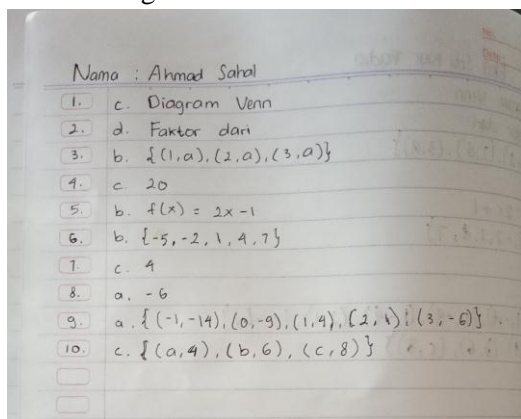 Nama : Ahmad Sahal
1. c. Diagram Venn
2. d. Faktor dari
3. b. {(1,a), (2,a), (3,a)}
4. c. 20
5. b. f(x) = 2x -1
6. b. {-5, -2, 1, 4, 7}
7. c. 4
8. a. -6
9. a. {(-1,-14), (0,-9), (1,4), (2,4), (3,-6)}
10. c. {(a,4), (b,6), (c,8)}